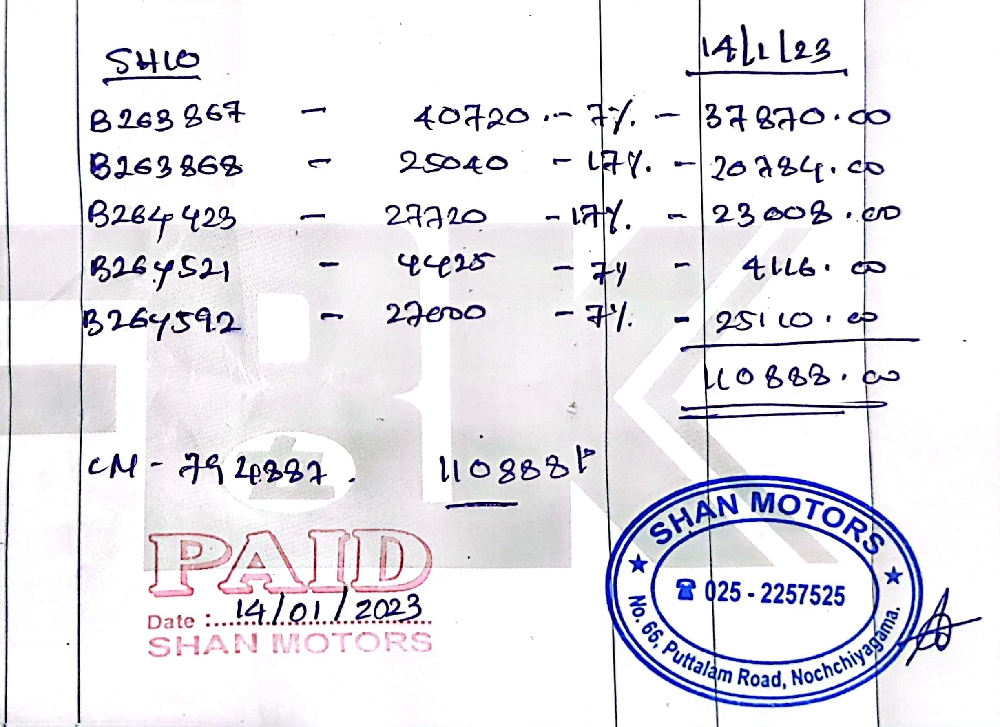 SHLO 14/1/23
B263867 - 40720.- - 7%. - 37870.00
B263868 - 25040 - 17%. - 20784.00
B264423 - 27720 - 17%. - 23008.00
B264521 - 4425 - 7% - 4116.00
B264592 - 27000 - 7%. - 25110.00
110888.00
CM - 794887. 110888
PAID
Date : 14/01/2023
SHAN MOTORS
SHAN MOTORS
☎ 025 - 2257525
No. 66, Puttalam Road, Nochchiyagama.